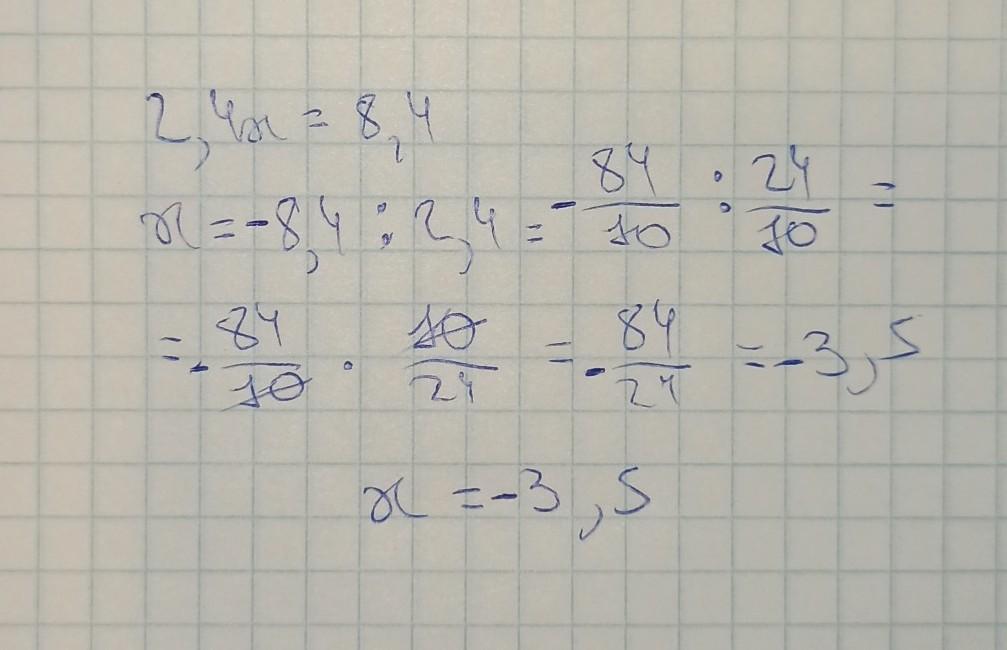 2,4x = 8,4
x = -8,4 : 2,4 = -84/10 : 24/10 =
= -84/10 · 10/24 = -84/24 = -3,5
x = -3,5